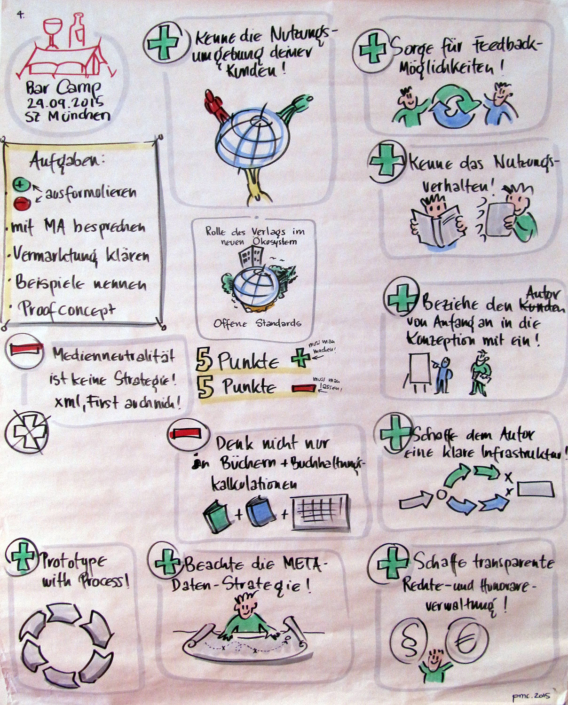 4.
Bar Camp
29.09.2015
SZ München
Aufgaben:
ausformulieren
• mit MA besprechen
• Vermarktung klären
• Beispiele nennen
• Proof concept
Kenne die Nutzungs-
umgebung deiner
Kunden!
Sorge für Feedback-
Möglichkeiten!
Kenne das Nutzungs-
verhalten!
Rolle des Verlags im
neuen Ökosystem
Offene Standards
Autor
Beziehe den Kunden
von Anfang an in die
Konzeption mit ein!
Medienneutralität
ist keine Strategie!
xml, First auch nich!
5 Punkte +
muss man
machen!
5 Punkte -
muss man
lassen!
Denk nicht nur
in Büchern + Buchhaltungs-
kalkulationen
+ +
Schaffe dem Autor
eine klare Infrastruktur!
x
x
Prototype
with Process!
Beachte die META-
Daten-Strategie!
Schaffe transparente
Rechte- und Honorare-
verwaltung!
§ €
pmc. 2015